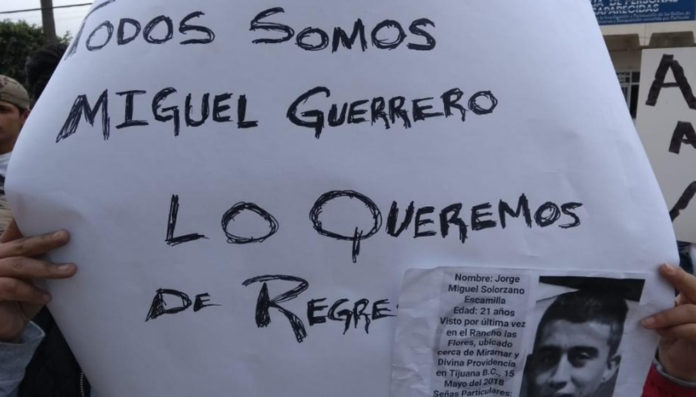 TODOS SOMOS
MIGUEL GUERRERO
LO QUEREMOS
DE REGRE
Nombre: Jorge
Miguel Solorzano
Escamilla
Edad: 21 años
Visto por última vez
en el Rancho las
Flores, ubicado
cerca de Miramar y
Divina Providencia
en Tijuana B.C., 15
Mayo del 2018
Señas Particulares:
DE PERSONAS
DESAPARECIDAS
A
A